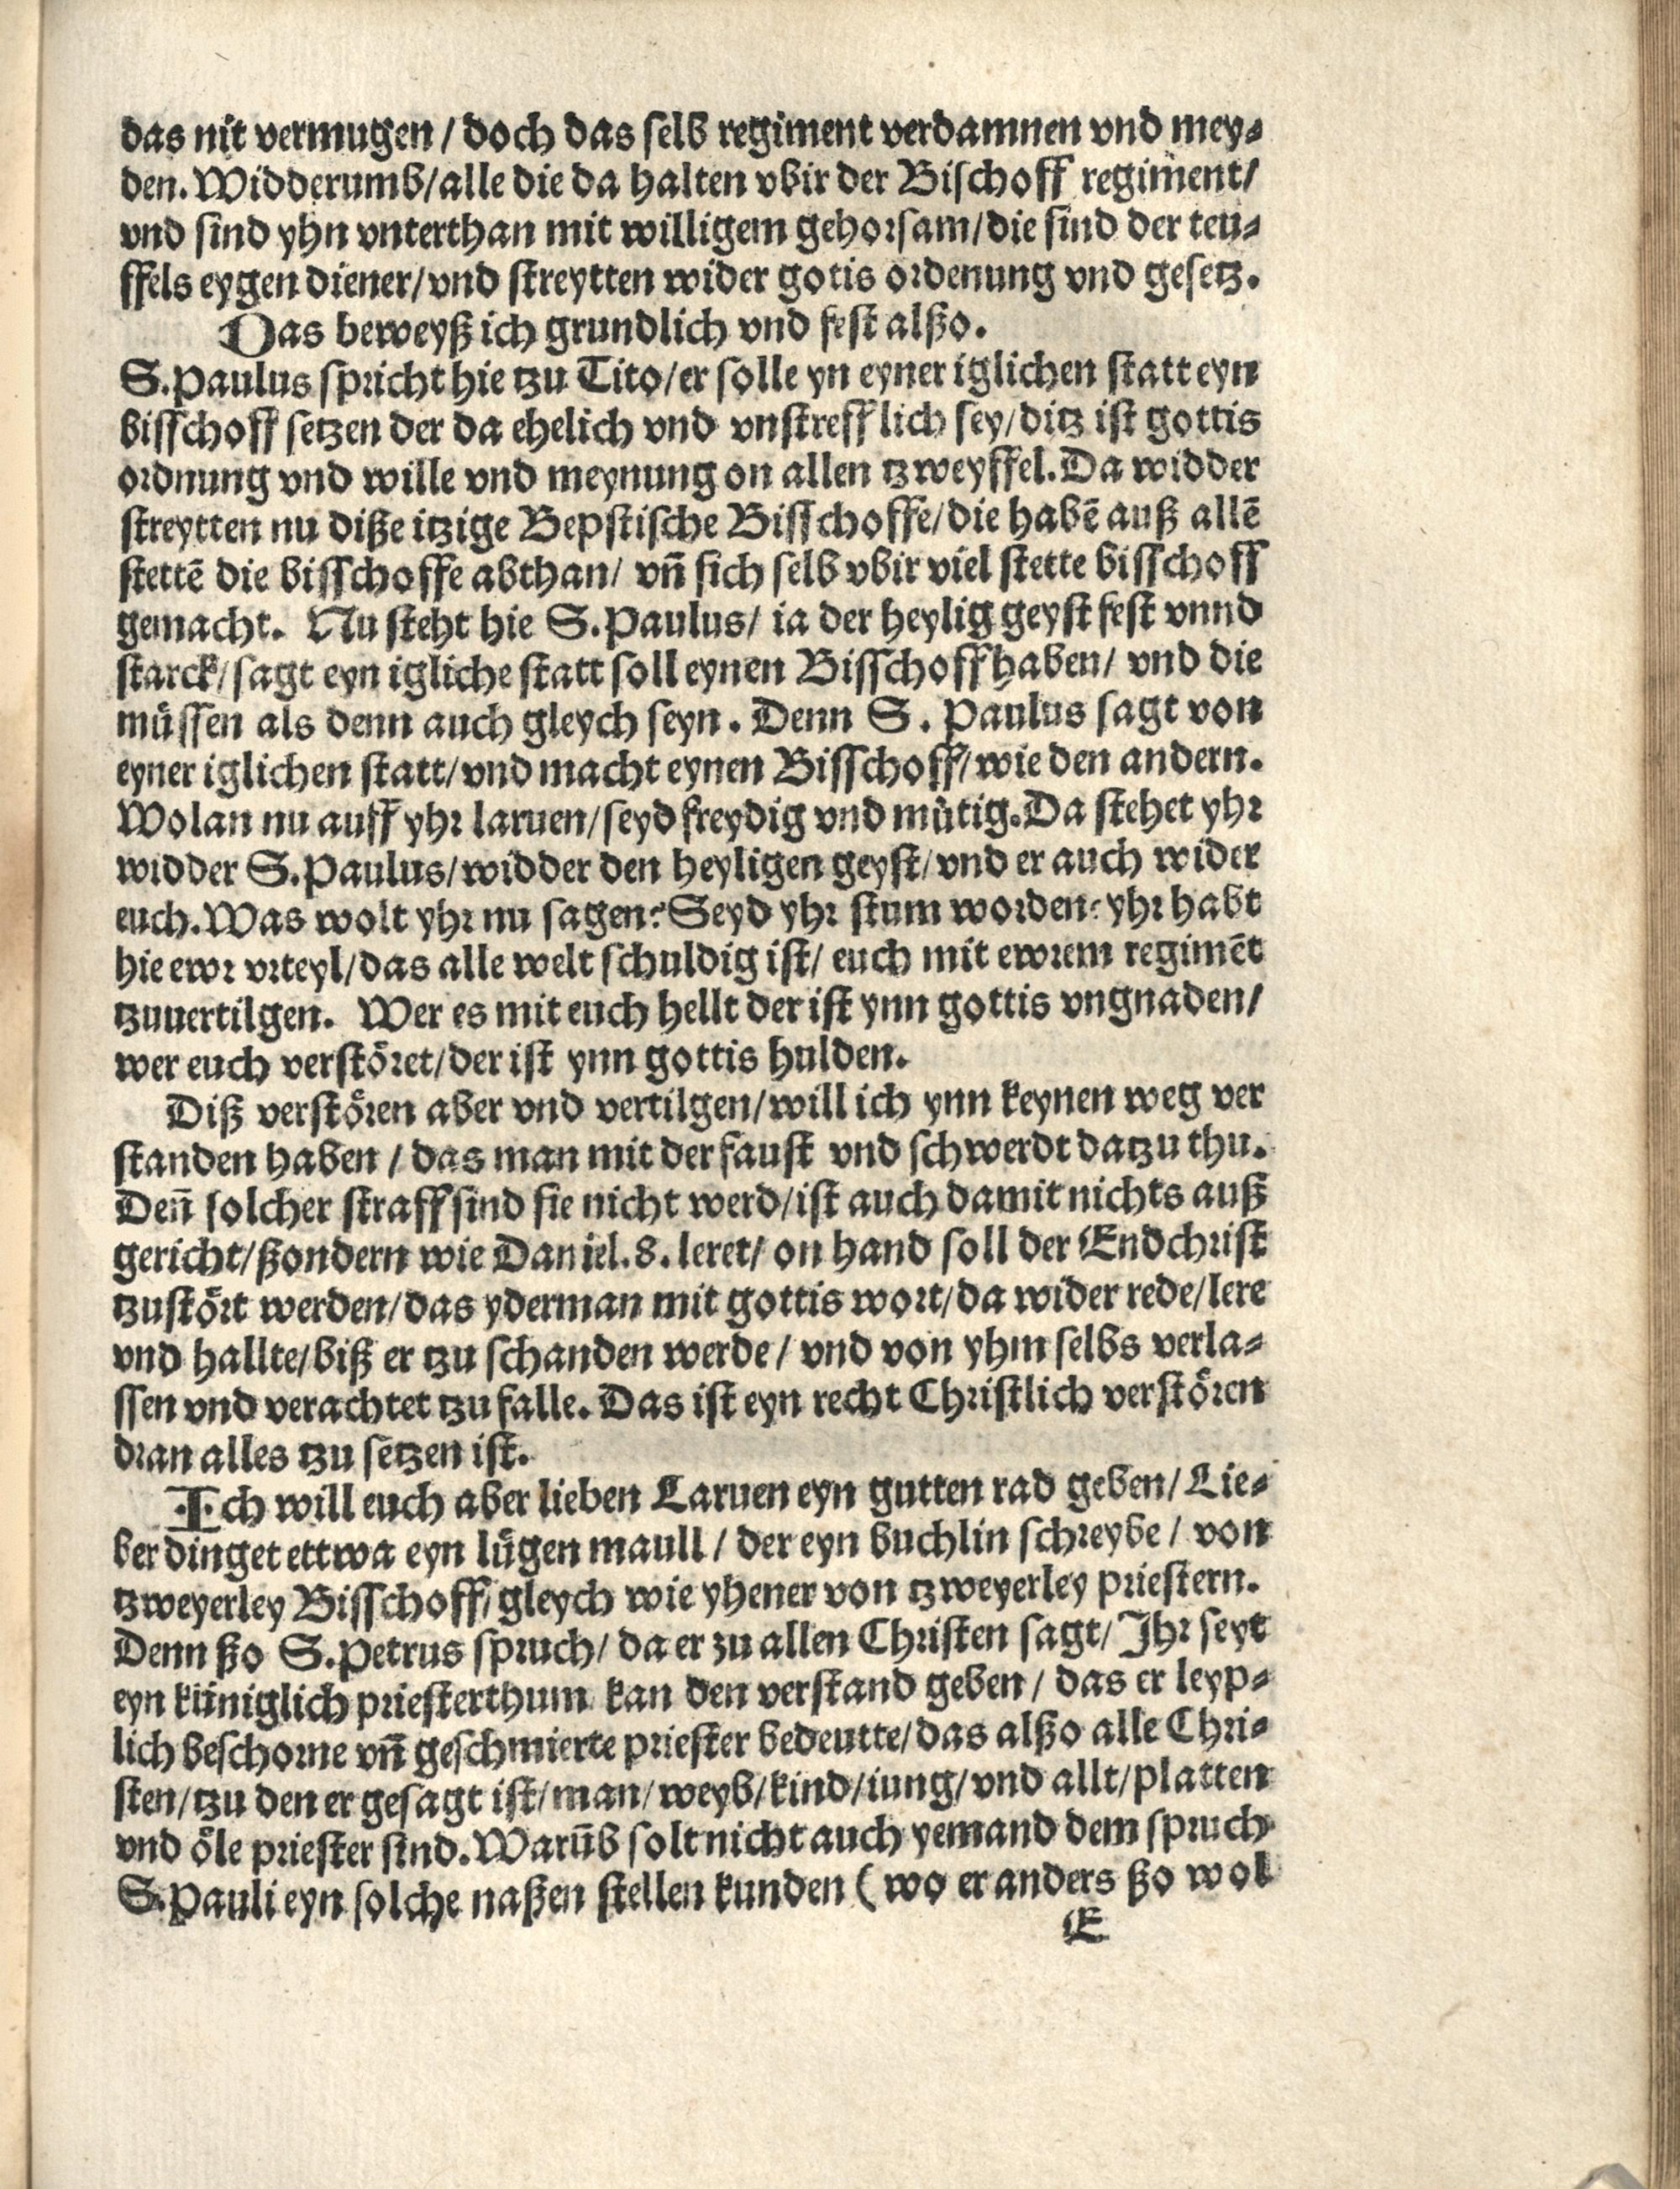 das nit vermugen / doch das selb regiment verdamnen vnd mey⸗
den. Widderumb/alle die da halten vbir der Bischoff regiment/
vnd sind yhn vnterthan mit willigem gehorsam/die sind der teu⸗
ffels eygen diener/vnd streytten wider gotis ordenung vnd gesetz.
Das beweyß ich grundlich vnd fest alßo.
S.Paulus spricht hie tzu Tito/er solle yn eyner iglichen statt eyn
bisschoff setzen der da ehelich vnd vnstrefflich sey/ditz ist gottis
ordnung vnd wille vnd meynung on allen tzweyffel. Da widder
streytten nu diße itzige Bepstische Bisschoffe/die habē auß allē
stettē die bisschoffe abthan/ vn̄ sich selb vbir viel stette bisschoff
gemacht. Nu steht hie S.Paulus/ ia der heylig geyst fest vnnd
starck/sagt eyn igliche statt soll eynen Bisschoff haben/ vnd die
müssen als denn auch gleych seyn. Denn S. Paulus sagt von
eyner iglichen statt/vnd macht eynen Bisschoff/wie den andern.
Wolan nu auff yhr laruen/seyd freydig vnd mütig. Da stehet yhr
widder S.Paulus/widder den heyligen geyst/vnd er auch wider
euch. Was wolt yhr nu sagen? Seyd yhr stum worden? yhr habt
hie ewr vrteyl/das alle welt schuldig ist/ euch mit ewrem regimēt
tzuuertilgen. Wer es mit euch hellt der ist ynn gottis vngnaden/
wer euch verstöret/der ist ynn gottis hulden.
Diß verstören aber vnd vertilgen/will ich ynn keynen weg ver
standen haben / das man mit der faust vnd schwerdt datzu thu.
Den̄ solcher straff sind sie nicht werd/ist auch damit nichts auß
gericht/ßondern wie Daniel. 8. leret/ on hand soll der Endchrist
tzustört werden/das yderman mit gottis wort/da wider rede/lere
vnd hallte/biß er tzu schanden werde / vnd von yhm selbs verla⸗
ssen vnd verachtet tzu falle. Das ist eyn recht Christlich verstören
dran alles tzu setzen ist.
Ich will euch aber lieben Laruen eyn gutten rad geben/ Lie⸗
ber dinget ettwa eyn lügen maull / der eyn buchlin schreybe / von
tzweyerley Bisschoff/gleych wie yhener von tzweyerley priestern.
Denn ßo S.Petrus spruch/ da er zu allen Christen sagt/ Ihr seyt
eyn küniglich priesterthum kan den verstand geben / das er leyp⸗
lich beschorne vn̄ geschmierte priester bedeutte/das alßo alle Chri⸗
sten/tzu den er gesagt ist/man/weyb/kind/iung/vnd allt/platten
vnd öle priester sind. Warūb solt nicht auch yemand dem spruch
S.Pauli eyn solche naßen stellen kunden (wo er anders ßo wol
E